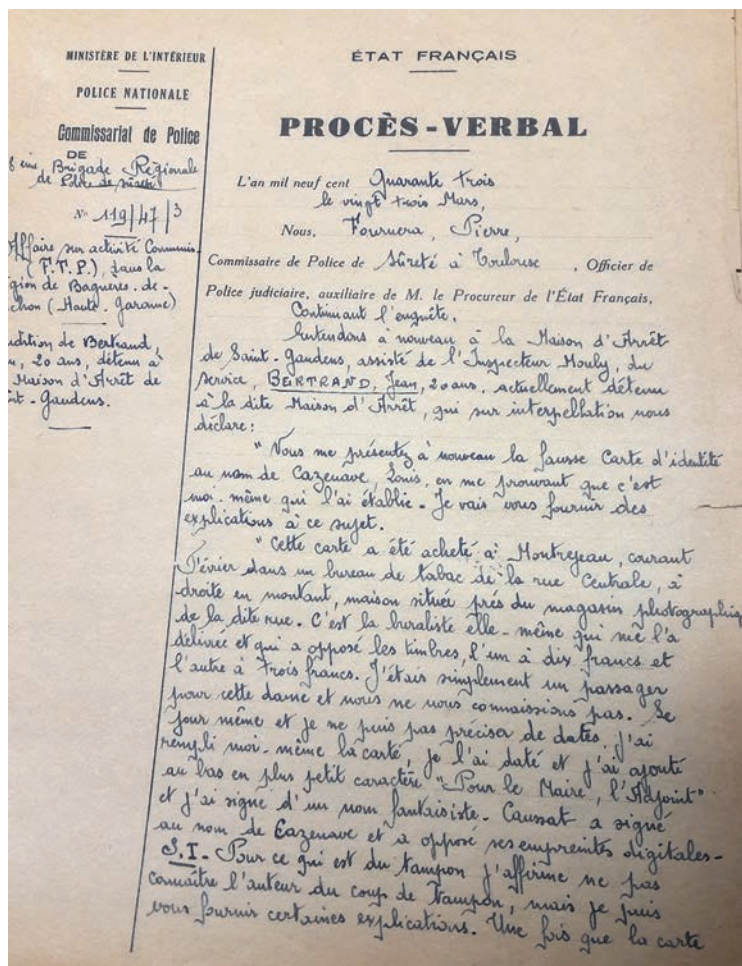 MINISTÈRE DE L'INTÉRIEUR
POLICE NATIONALE
Commissariat de Police
DE
8 eme Brigade Régionale
de Police de Sûreté
N° 119/47/3
Affaire sur activité Communis.
(F.T.P.), dans la
gion de Bagneres-de-
chon (Haute-Garonne)
udition de Bertrand,
n, 20 ans, détenu à
Maison d'Arrêt de
nt-Gaudens.
ÉTAT FRANÇAIS
PROCÈS-VERBAL
L'an mil neuf cent Quarante trois
le vingt trois Mars,
Nous, Pierre,
Commissaire de Police de Sûreté à Toulouse, Officier de
Police judiciaire, auxiliaire de M. le Procureur de l'État Français,
Continuant l'enquête.
Entendons à nouveau à la Maison d'Arrêt
de Saint-Gaudens, assisté de l'Inspecteur Mouly, du
service, BERTRAND, Jean, 20 ans, actuellement détenu
à la dite Maison d'Arrêt, qui sur interpellation nous
déclare :
"Vous me présentez à nouveau la fausse Carte d'identité
au nom de Cazenave, Louis, en me prouvant que c'est
moi-même qui l'ai établie. Je vais vous fournir des
explications à ce sujet.
"Cette carte a été acheté à Montrejeau, courant
Février dans un bureau de tabac de la rue Centrale, à
droite en montant, maison situé prés du magasin photographiq
de la dite rue. C'est la buraliste elle-même qui me l'a
délivrée et qui a opposé les timbres, l'un à dix francs et
l'autre à Trois francs. J'étais simplement un passager
pour cette dame et nous ne nous connaissions pas. Le
jour même et je ne puis pas préciser de dates, j'ai
rempli moi-même la carte, je l'ai daté et j'ai ajouté
au bas en plus petit caractère "Pour le Maire, l'Adjoint"
et j'ai signé d'un nom fantaisiste. Caussat a signé
au nom de Cazenave et a opposé ses empreintes digitales-
S.I- Pour ce qui est du tampon j'affirme ne pas
connaître l'auteur du coup de tampon, mais je puis
vous fournir certaines explications. Une fois que la carte